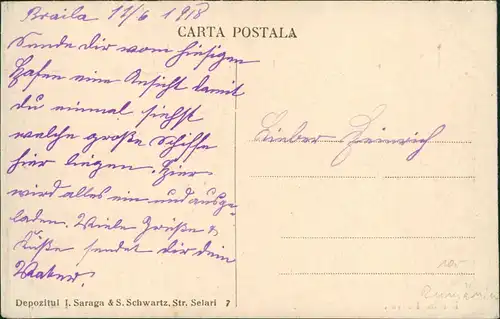 Braila 11/6 1918
CARTA POSTALA
Sende dir vom hiesigen
Hafen eine Ansicht damit
du einmal siehst
welche große Schiffe
hier liegen. Hier
wird alles ein und ausge-
laden. Viele Grüße &
Küße sendet dir dein
Vater.
Lieber Heinrich
Rumänien
Depozitul I. Saraga & S. Schwartz, Str. Selari 7